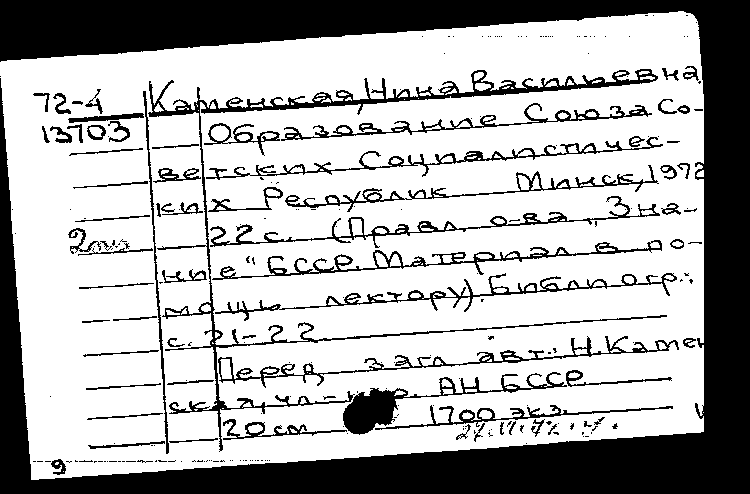 72-4 Каменская, Нина Васильевна
13703 Образование Союза Со-
ветских Социалистичес-
ких Республик Минск, 1972
2 22 с. (Правл. о-ва „Зна-
ние" БССР. Материал в по-
мощь лектору). Библиогр.:
с. 21-22
Перед загл авт.: Н. Камен
ская, чл.-кор. АН БССР
20 см 1700 экз.
9